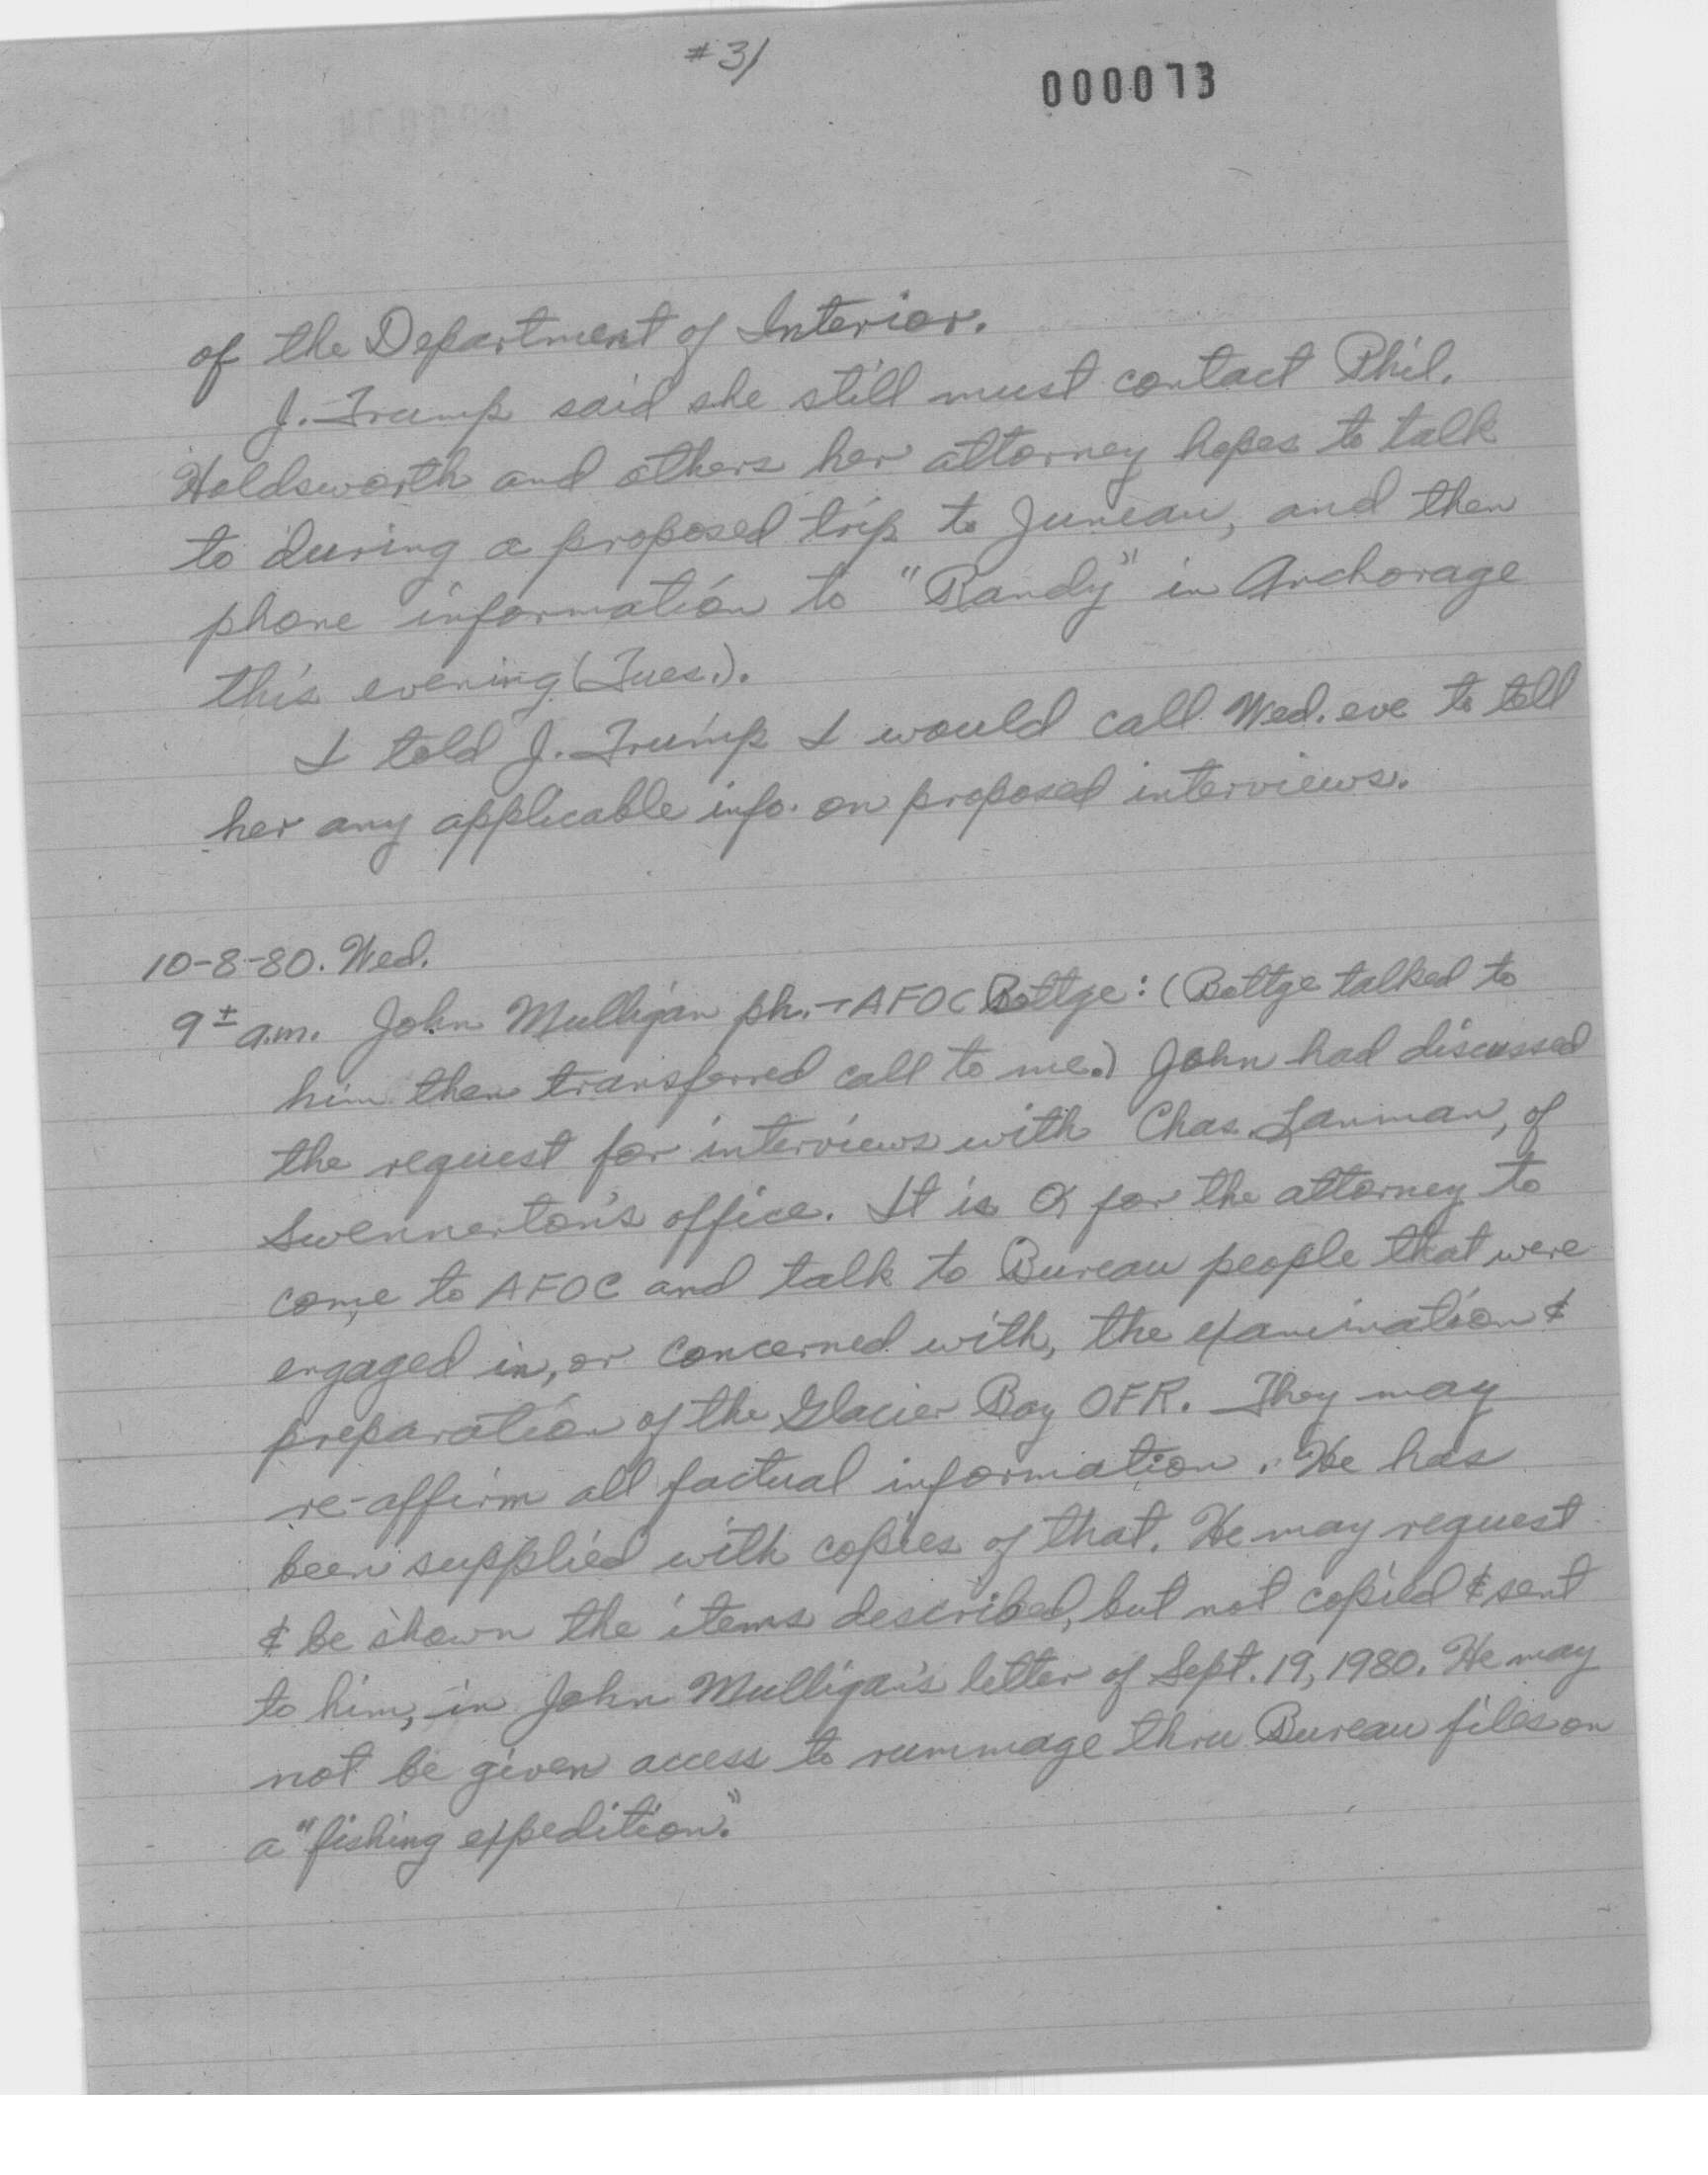 #31
000073
of the Department of Interior.
J. Trump said she still must contact Phil.
Holdsworth and others her attorney hopes to talk
to during a proposed trip to Juneau, and then
phone information to "Randy" in Anchorage
this evening (Tues.).
I told J. Trump I would call Wed. eve to tell
her any applicable info. on proposed interviews.
10-8-80. Wed.
9± a.m. John Mulligan ph. → AFOC Bottge: (Bottge talked to
him then transferred call to me.) John had discussed
the request for interviews with Chas. Lanman, of
Swennerton's office. It is OK for the attorney to
come to AFOC and talk to Bureau people that were
engaged in, or concerned with, the examination &
preparation of the Glacier Bay OFR. They may
re-affirm all factual information. He has
been supplied with copies of that. He may request
& be shown the items described, but not copied & sent
to him, in John Mulligan's letter of Sept. 19, 1980. He may
not be given access to rummage thru Bureau files on
a "fishing expedition."